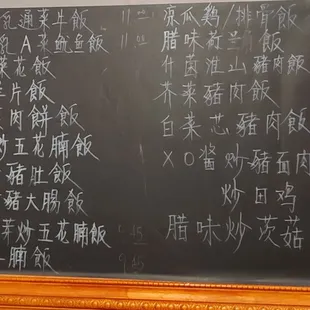 通菜牛飯 11.00
A菜魷魚飯 11.00
菜花飯
片飯
肉餅飯
炒五花腩飯
豬肚飯
豬大腸飯
芽炒五花腩飯
腩飯
涼瓜鸡/排骨飯
腊味荷兰飯
什菌淮山豬肉飯
芥菜豬肉飯
白菜芯豬肉飯
XO酱炒豬面肉
炒田鸡
腊味炒茨菇